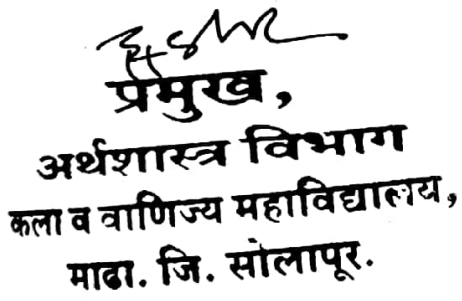 प्रमुख,
अर्थशास्त्र विभाग
कला व वाणिज्य महाविद्यालय,
माढा. जि. सोलापूर.